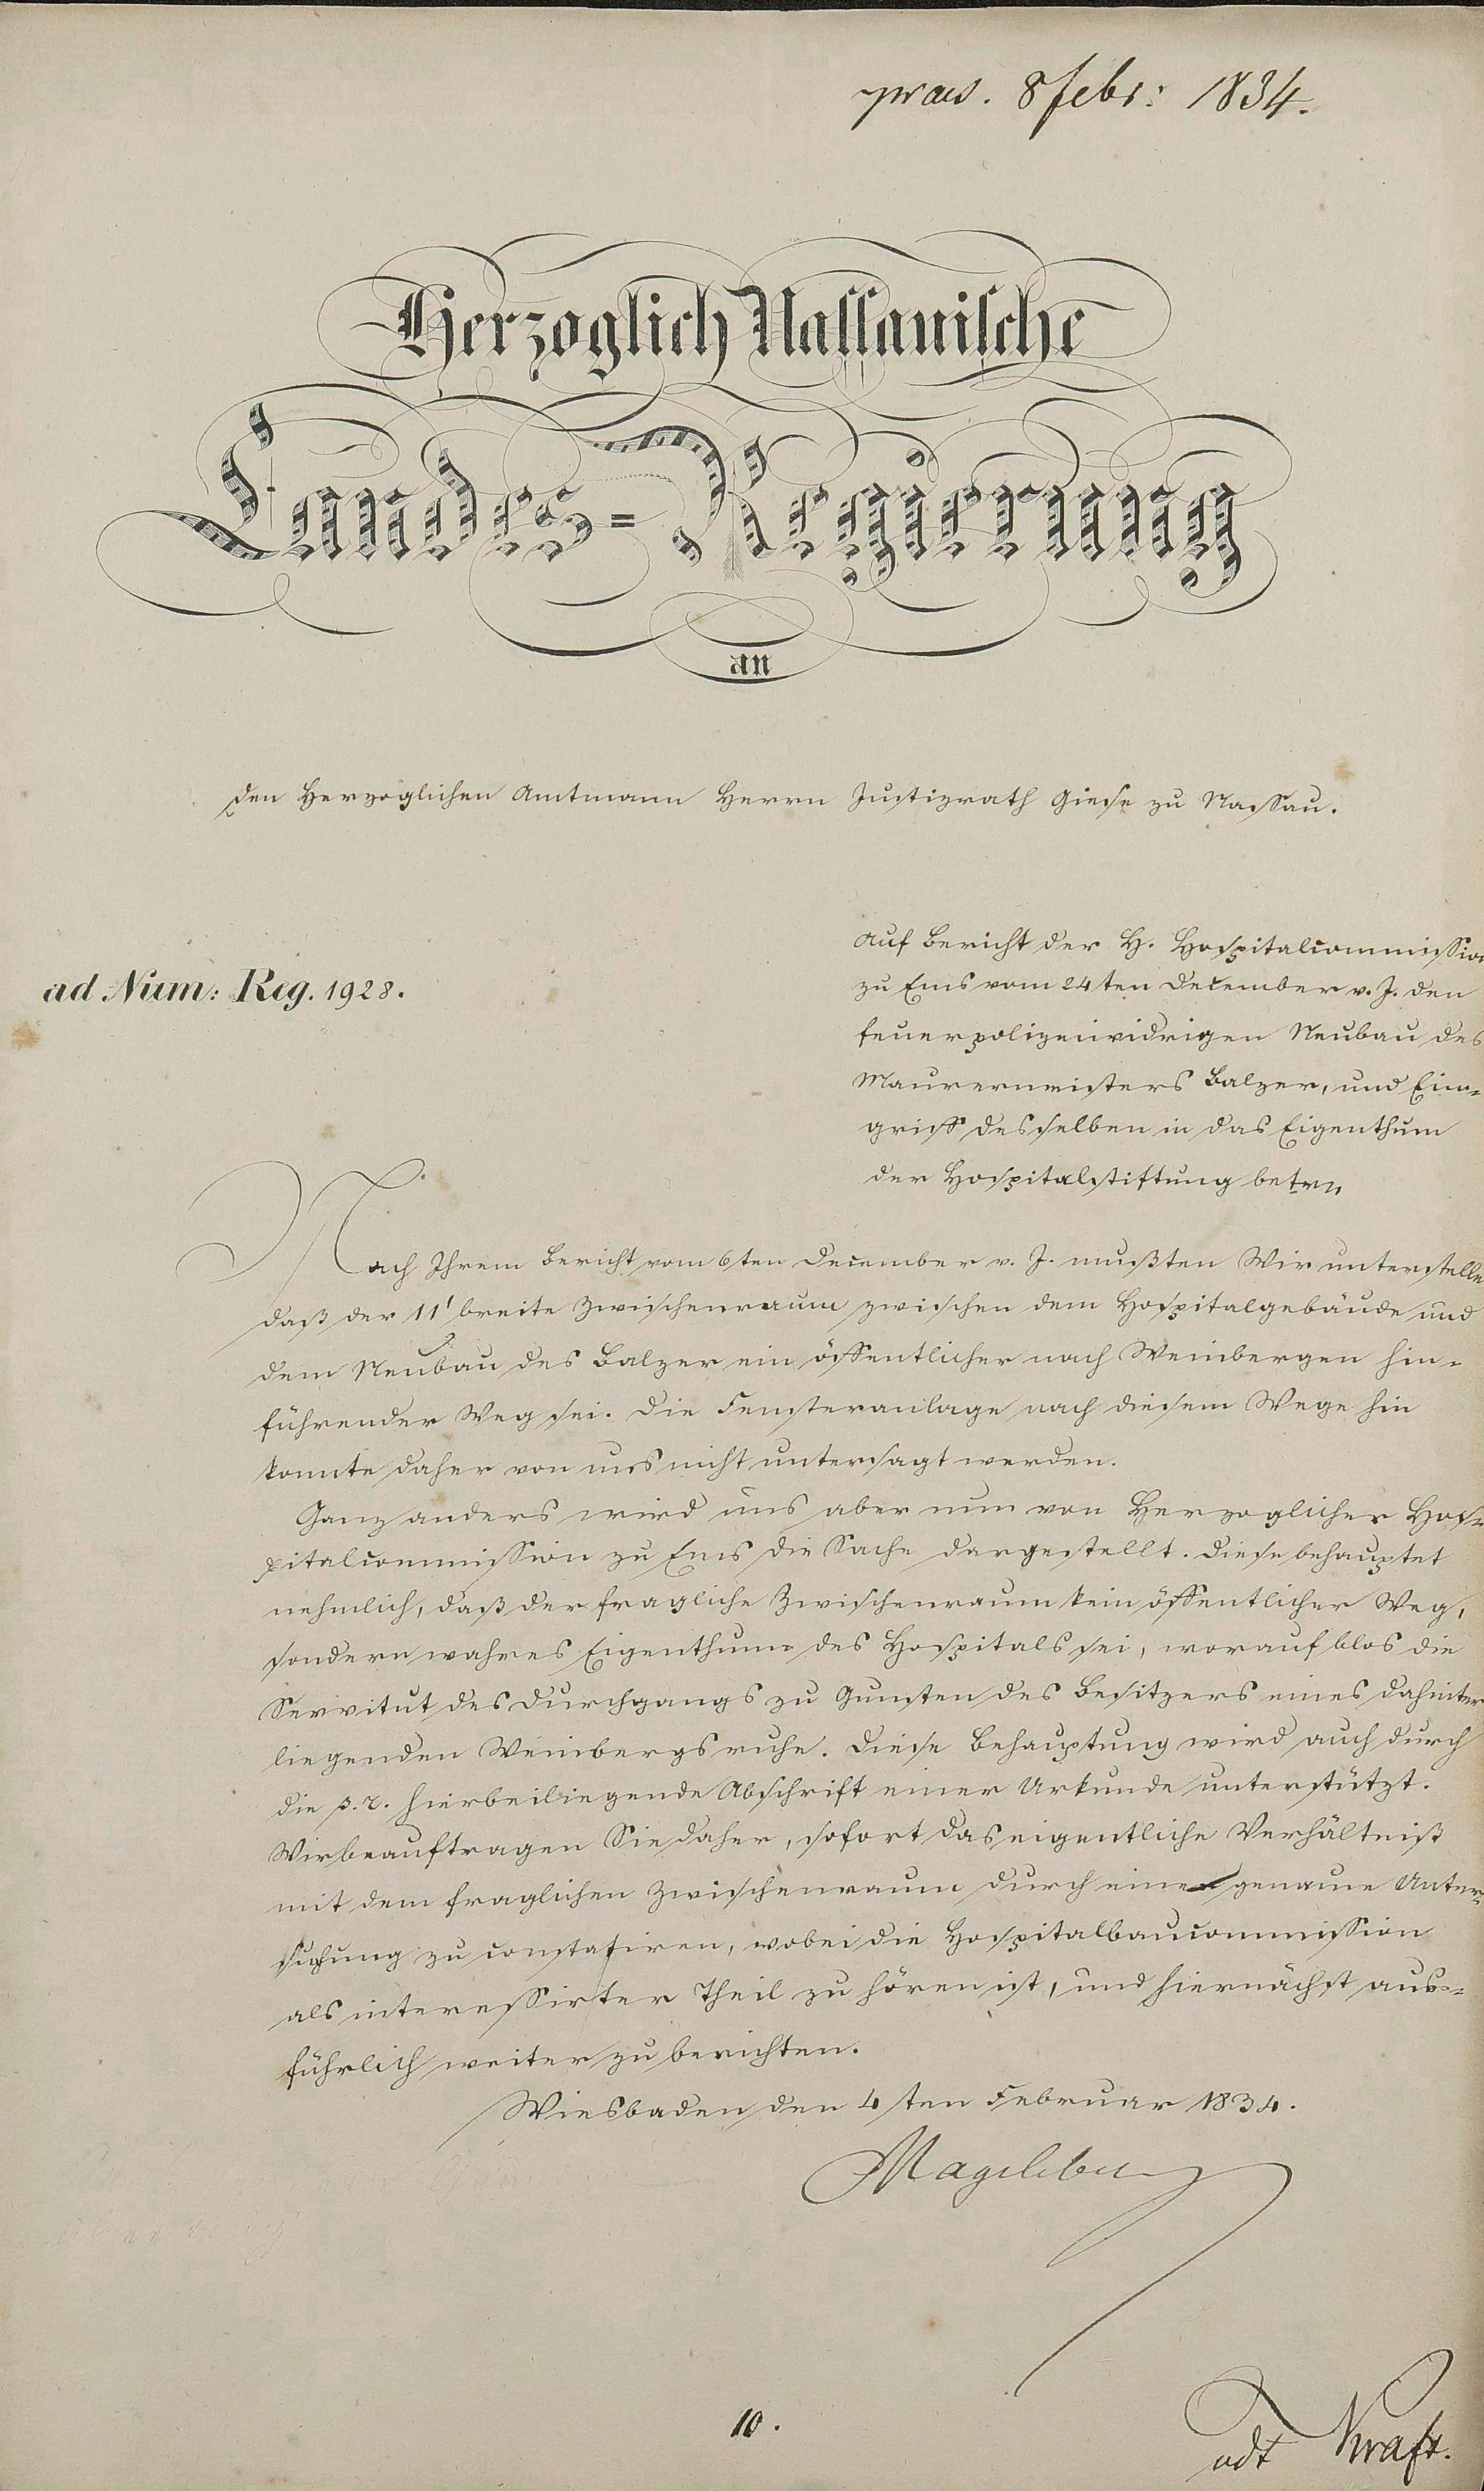 praes. 8 febr: 1834.
Herzoglich Nassauische
Landes=Regierung
an
den Herzoglichen Amtmann Herrn Justizrath Giese zu Nassau.
auf Bericht der H. Hospitalcommission
ad Num: Reg. 1928.
zu Ems vom 24ten December v. J. den
feuerpolizeiwidrigen Neubau des
Maurermeisters Balzer, und Ein-
griff desselben in das Eigenthum
der Hospitalstiftung betrn
Nach Ihrem Bericht vom 6ten December v. J. mußten Wir unterstelle
daß der 11' breite Zwischenraum zwischen dem Hospitalgebäude und
dem Neubau des Balzer ein öffentlicher nach Weinbergen hin-
führender Weg sei. Die Fensteranlage nach diesem Wege hin
konnte daher von uns nicht untersagt werden.
Ganz anders wird uns aber nun von Herzoglicher Hos-
pitalcommission zu Ems die Sache dargestellt. Diese behauptet
nehmlich, daß der fragliche Zwischenraum kein öffentlicher Weg,
sondern wahres Eigenthum des Hospitals sei, worauf blos die
Servitut des Durchgangs zu Gunsten des Besitzers eines dahinter
liegenden Weinbergs ruhe. Diese Behauptung wird auch durch
die p. r. hierbeiliegende Abschrift einer Urkunde unterstützt.
Wir beauftragen Sie daher, sofort das eigentliche Verhältniß
mit dem fraglichen Zwischenraum durch eine genaue Unter-
suchung zu constatiren, wobei die Hospitalbaucommission
als interessirter Theil zu hören ist, und hiernächst aus-
führlich weiter zu berichten.
Wiesbaden den 4ten Februar 1834.
Magdeburg
10.
vdt Kraft.